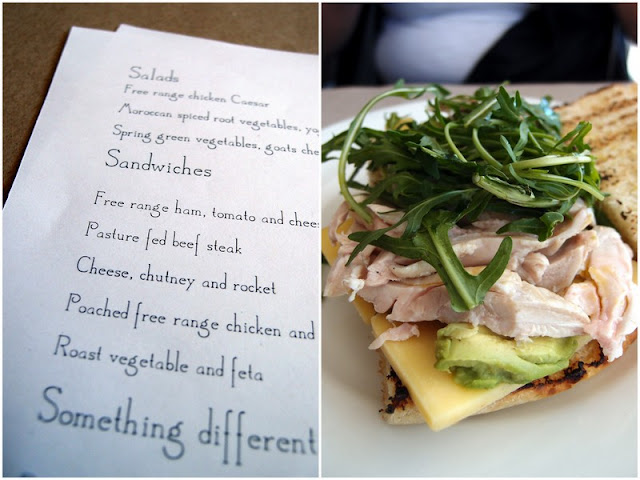 Salads
Free range chicken Caesar
Moroccan spiced root vegetables,
Spring green vegetables, goats
Sandwiches
Free range ham, tomato and
Pasture fed beef steak
Cheese, chutney and rocket
Poached free range chicken and
Roast vegetable and feta
Something different